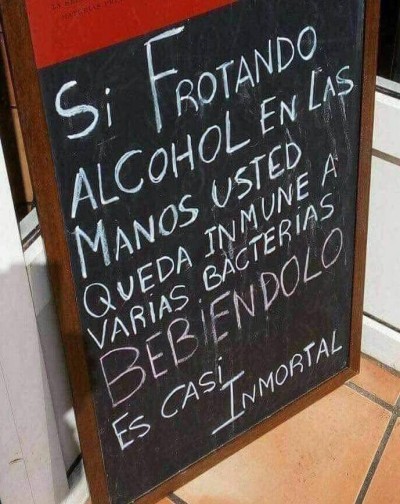 Si FROTANDO
ALCOHOL EN LAS
MANOS USTED
QUEDA INMUNE A
VARIAS BACTERIAS
BEBIENDOLO
ES CASI INMORTAL